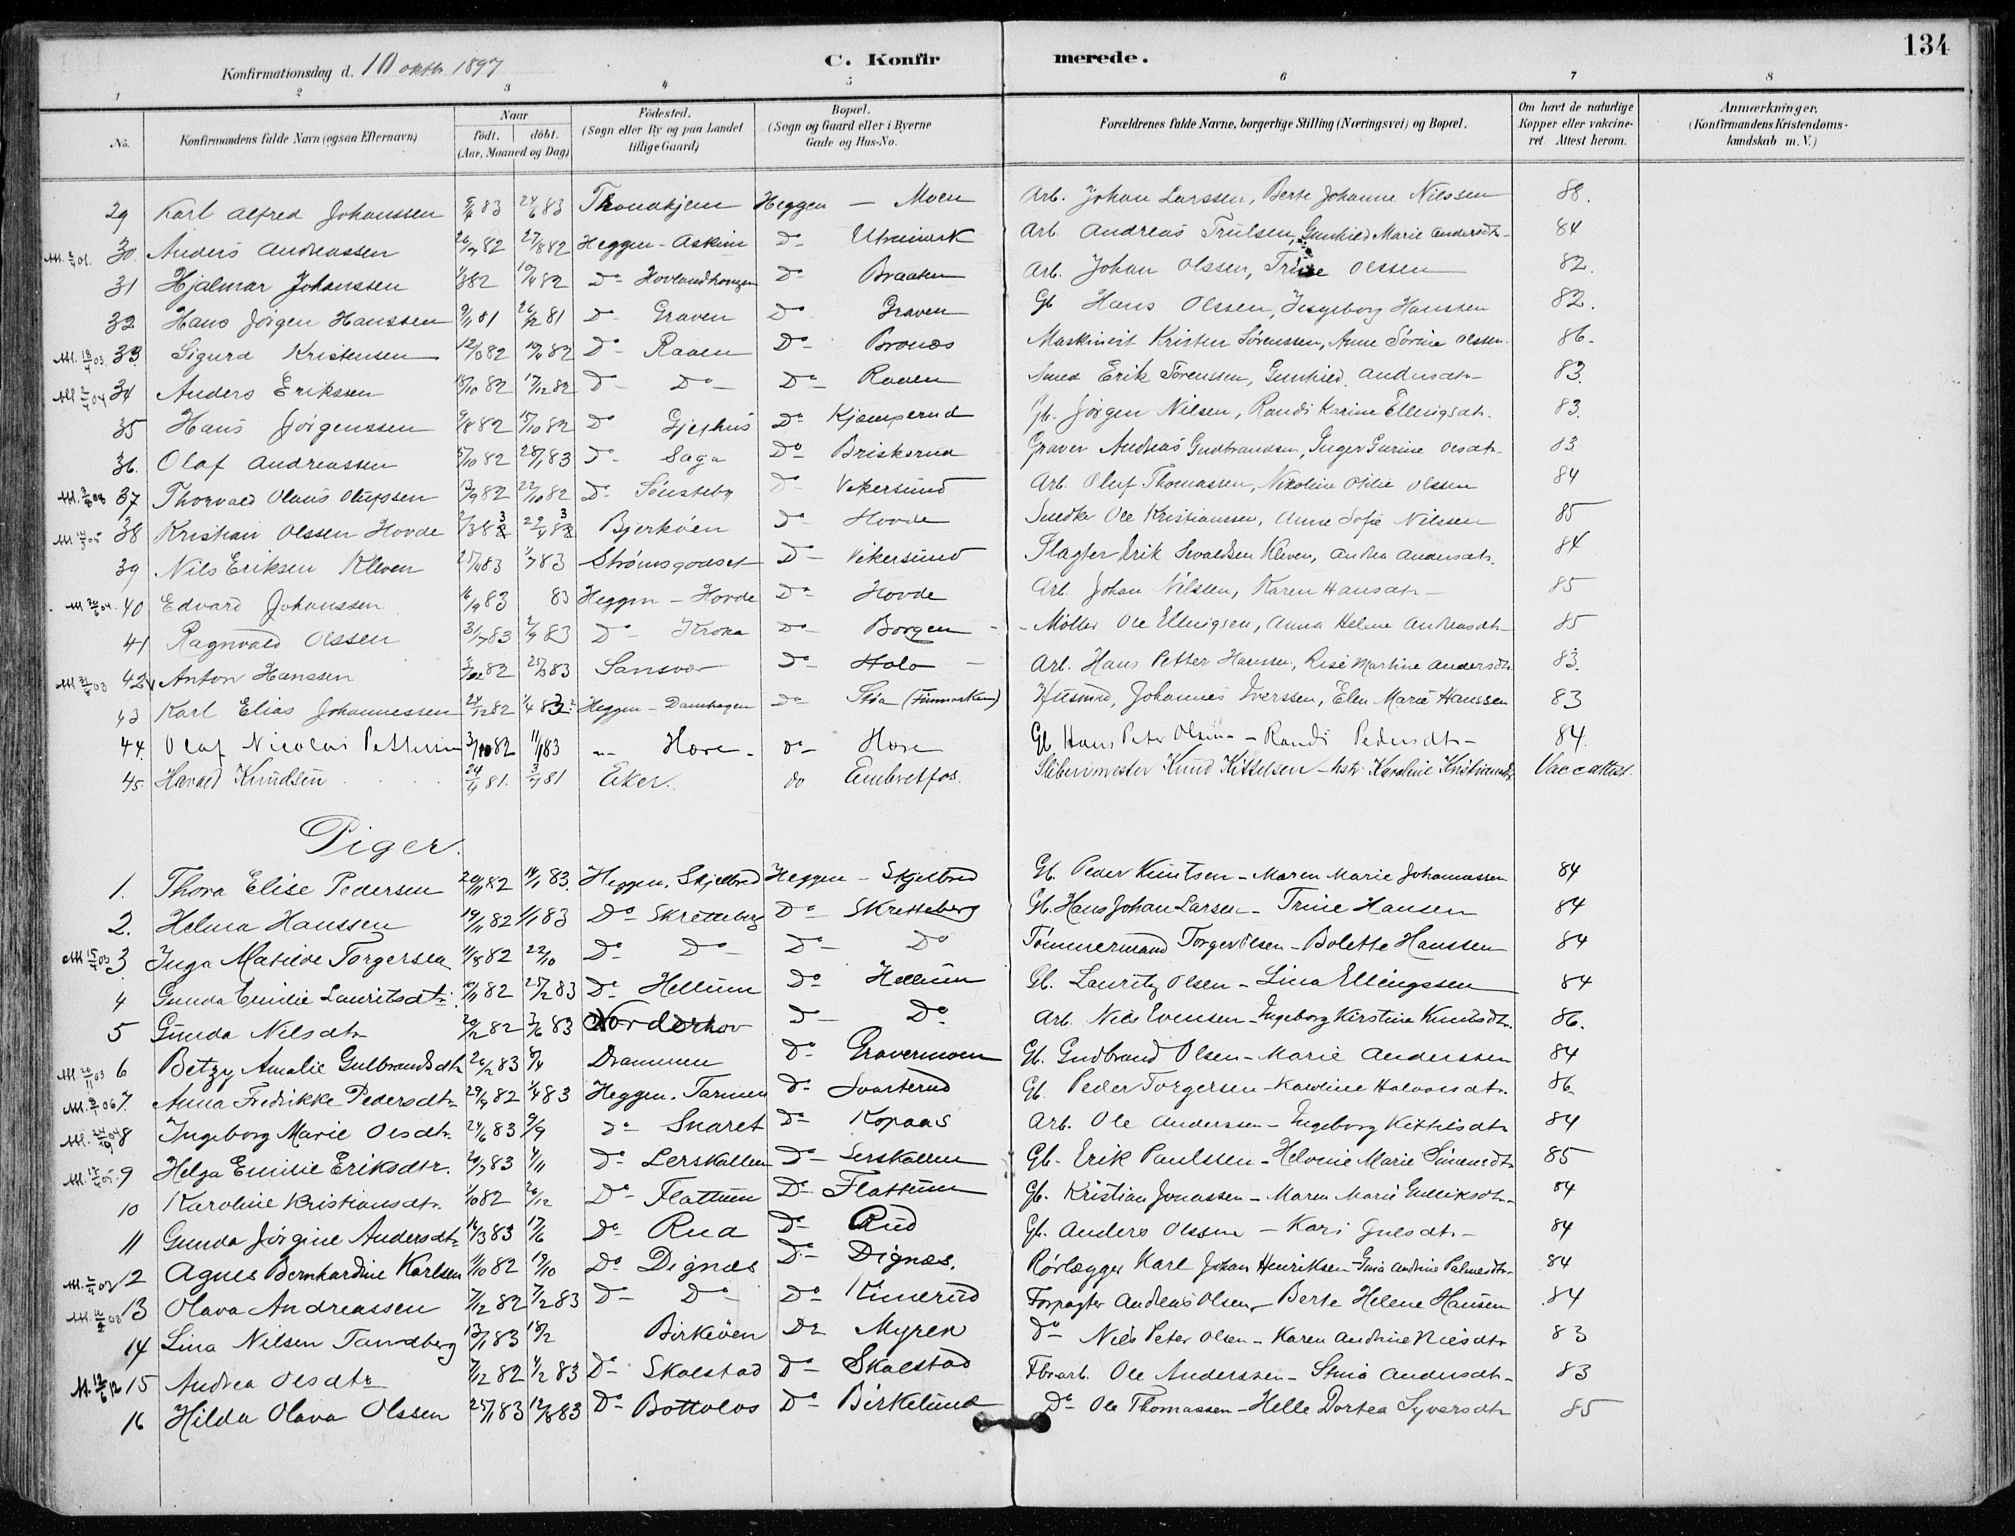 134
Konfirmationsdag d. 10 oktb 1897
C. Konfirmerede.
1 2 3 4 5 6 7 8
No. Konfirmandens fulde Navn (ogsaa Efternavn) Naar födt. döbt. (Aar, Maaned og Dag) Födested. (Sogn eller By og paa Landet tillige Gaard) Bopæl. (Sogn og Gaard eller i Byerne Gade og Hus-No. Forældrenes fulde Navne, borgerlige Stilling (Næringsvei) og Bopæl. Om havt de naturlige Kopper eller vaccineret. Attest herom. Anmærkninger. (Konfirmandens Kristendomskundskab m. V.)
29 Karl Alfred Johanssen 83 24/6 83 Throndhjem Heggen — Moen Arb. Johan Larssen, Berte Johanne Nilssen 88.
30 Anders Andreassen 26/7 82 27/8 82 Heggen - Askim Do Utvimark Arb. Andreas Trulsen, Gunhild Marie Andersdtr 84
31 Hjalmar Johanssen 82 82 Do Do Braaten Arb. Johan Olssen, Trine Olssen 82.
32 Hans Jørgen Hanssen 81 26/12 81 Do Graven Do Graven Gb Hans Olssen, Ingeborg Hanssen 82.
33 Sigurd Kristensen 82 82 Do Raaen Do Bronæs Maskinist Kristen Sørenssen, Anne Sørine Olssen 86.
34 Anders Erikssen 82 17/12 82 Do Do Do Raaen Smed Erik Sørenssen, Gunhild Andersdtr 83.
35 Hans Jørgenssen 82 15/10 82 Do Gjethus Do Kjempernd Gb. Jørgen Nilsen, Randi Karine Ellingsdtr. 83.
36. Olaf Andreassen 5/10 82 28/1 83 Do Saga Do Briskerud Graver Andreas Gudbrandsen, Inger Gurine Olsdtr 83
37 Thorvald Olaus Olufssen 13/9 82 22/10 82 Do Sønsteby Do Vikersund Arb. Oluf Thomassen, Nikoline Otilie Olssen 84
38 Kristian Olssen Hovde 83 83 Bjerkøen Do Hovde Snedker Ole Kristianssen, Anne Sofie Nilssen 85
39 Nils Eriksen Kleven 83 83 Strømsgodset Do Vikersund Slagter Erik Kleven, Andrea Andersdtr. 84
40 Edvard Johanssen 83 83 Heggen - Hovde Do Hovde Arb. Johan Nilssen, Karen Hansdtr 85
41 Ragnvald Olssen 31/7 83 83 Do Krona Do Borgen Møller Ole Ellingsen, Anna Helene Andreasdtr 85
42 Anton Hanssen 82 83 Sansvær Do Holo Arb. Hans Petter Hanssen, Risé Martine Andersdtr 83.
43 Karl Elias Johannessen 24/12 82 83 Heggen - Damhagen Do Støa (Finmarken) Husmd, Johannes Iverssen, Elen Marie Hanssen 83
44. Olaf Nicolai Pettersen 82 83 Hære do Hære Gb Hans Peter Olsen - Randi Pedersdtr 84.
45. Harald Knudsen 81. 81 Eker. do Embretfos. Slibermester Knud Kittelsen - hstr Karoline Kristiansdtr Vaccattest.
Piger.
1. Thora Elise Pedersen 82 83. Heggen, Skjelbred Heggen - Skjelbred Gb. Peder Knutsen - Maren Marie Johannessen 84
2. Helma Hanssen 19/11 82 1/1 83 Do Skretteberg Do Skretteberg Gb. Hans Johan Larsen - Trine Hansen 84
3 Inga Matilde Torgersen 82 22/10 Do Do Do Do Tømmermand Torger Olsen - Bolette Hanssen 84
4 Gunda Emilie Lauritsdtr. 82 25/2 83 Do Hellum Do Hellum Gb. Lauritz Olsen - Lina Ellingssen 84
5 Gunda Nilsdtr 82 83 Norderhov Do Do Arb. Nils Evensen - Ingeborg Kirstine Knudsdtr. 86.
6 Betzy Amalie Gulbrandsdtr 26/2 83 8/4 Drammen Do Gravermoen Gb. Gudbrand Olsen - Marie Anderssen 84
7. Anna Fredrikke Pedersdtr 82 83 Heggen. Tarmen Do Svarterud Gb. Peder Torgersen - Karoline Halvorsdtr. 86
8 Ingeborg Marie Olsdtr. 24/6 83 9/9 Do Snaret Do Kopaas Arb. Ole Anderssen - Ingeborg Kittilsdtr 84
9 Helga Emilie Eriksdtr. 83 4/11 Do Lerskallen Do Lerskallen Gb. Erik Paulssen - Helvine Marie Simensdtr 85
10 Karoline Kristiansdtr. 82 26/12 Do Flattum Do Flattum Gb. Kristian Jonassen - Maren Marie Gulliksdtr 84
11 Gunda Jørgine Andersdtr 83 17/6 Do Rud Do Rud Gb. Anders Olssen - Kari Gulsdtr 84
12 Agnes Bernhardine Karlsen 82 Do Dignæs Do Dignæs. Rørlægger Karl Johan Henriksen - Gina Andrine Palmesdtr 84
13 Olava Andreassen 7/12 82 7/2 83 Do Do Do Kimerud Forpagter Andreas Olsen, Berte Helene Hansen 84
14 Lina Nilsen Tandberg 13/1 83 18/2 Birkeøen Do Myren Do Nils Peter Olsen - Karen Andrine Nilsdtr 83
15 Andrea Olsdtr 7/12 82 4/2 83 Do Skalstad Do Skalstad Fbrarb. Ole Anderssen - Stina Andersdtr 83
16 Hilda Olava Olssen 83 83 Do Bottolvs Do Birkelund Do Ole Thomassen - Helle Dortea Syversdtr 85